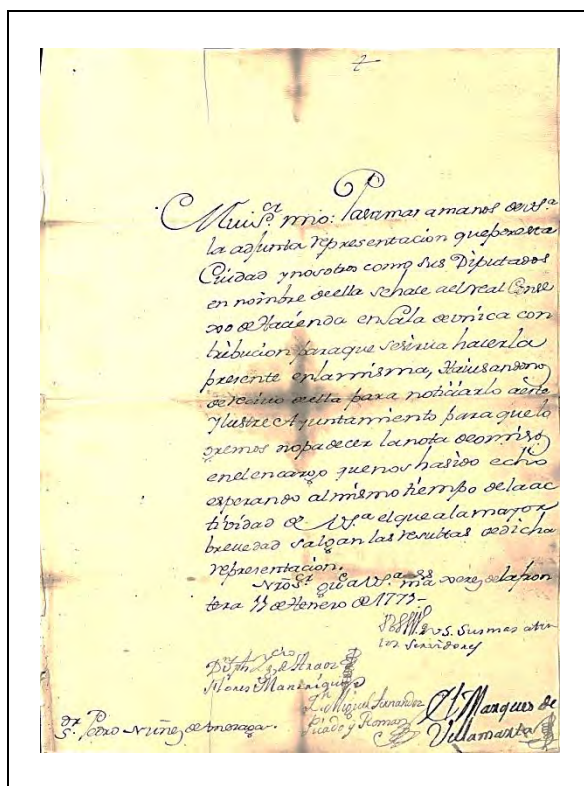 Mui Sr. mio: Pasamos a manos de V.S.ª
la adjunta representacion que por esta
Ciudad y nosotros como sus Diputados
en nombre de ella se hace al real Conse
xo de Hacienda en Sala de unica con
tribucion para que se sirva hacerla
presente en la misma, 
de recivo de ella para noticiarlo a este
Ylustre Ayuntamiento para que lo
gremos no padecer la nota de omisos
en el encargo que nos ha sido echo
esperando al mismo tiempo de la ac
tividad de V.S.ª el que a la mayor
brevedad salgan las resultas de dicha
representacion.
Ntro Sr. gue a V.S.ª ms. as. Xerez de la fron
tera 11 de Henero de 1771
de V.S. sus mas aten
tos servidores
Flores Manrrique
Dn. Miguel Fernandez
Picado y Roman
El Marques de
Villamarta
Sr. Dn. Pedro Nuñez de Amezaga.